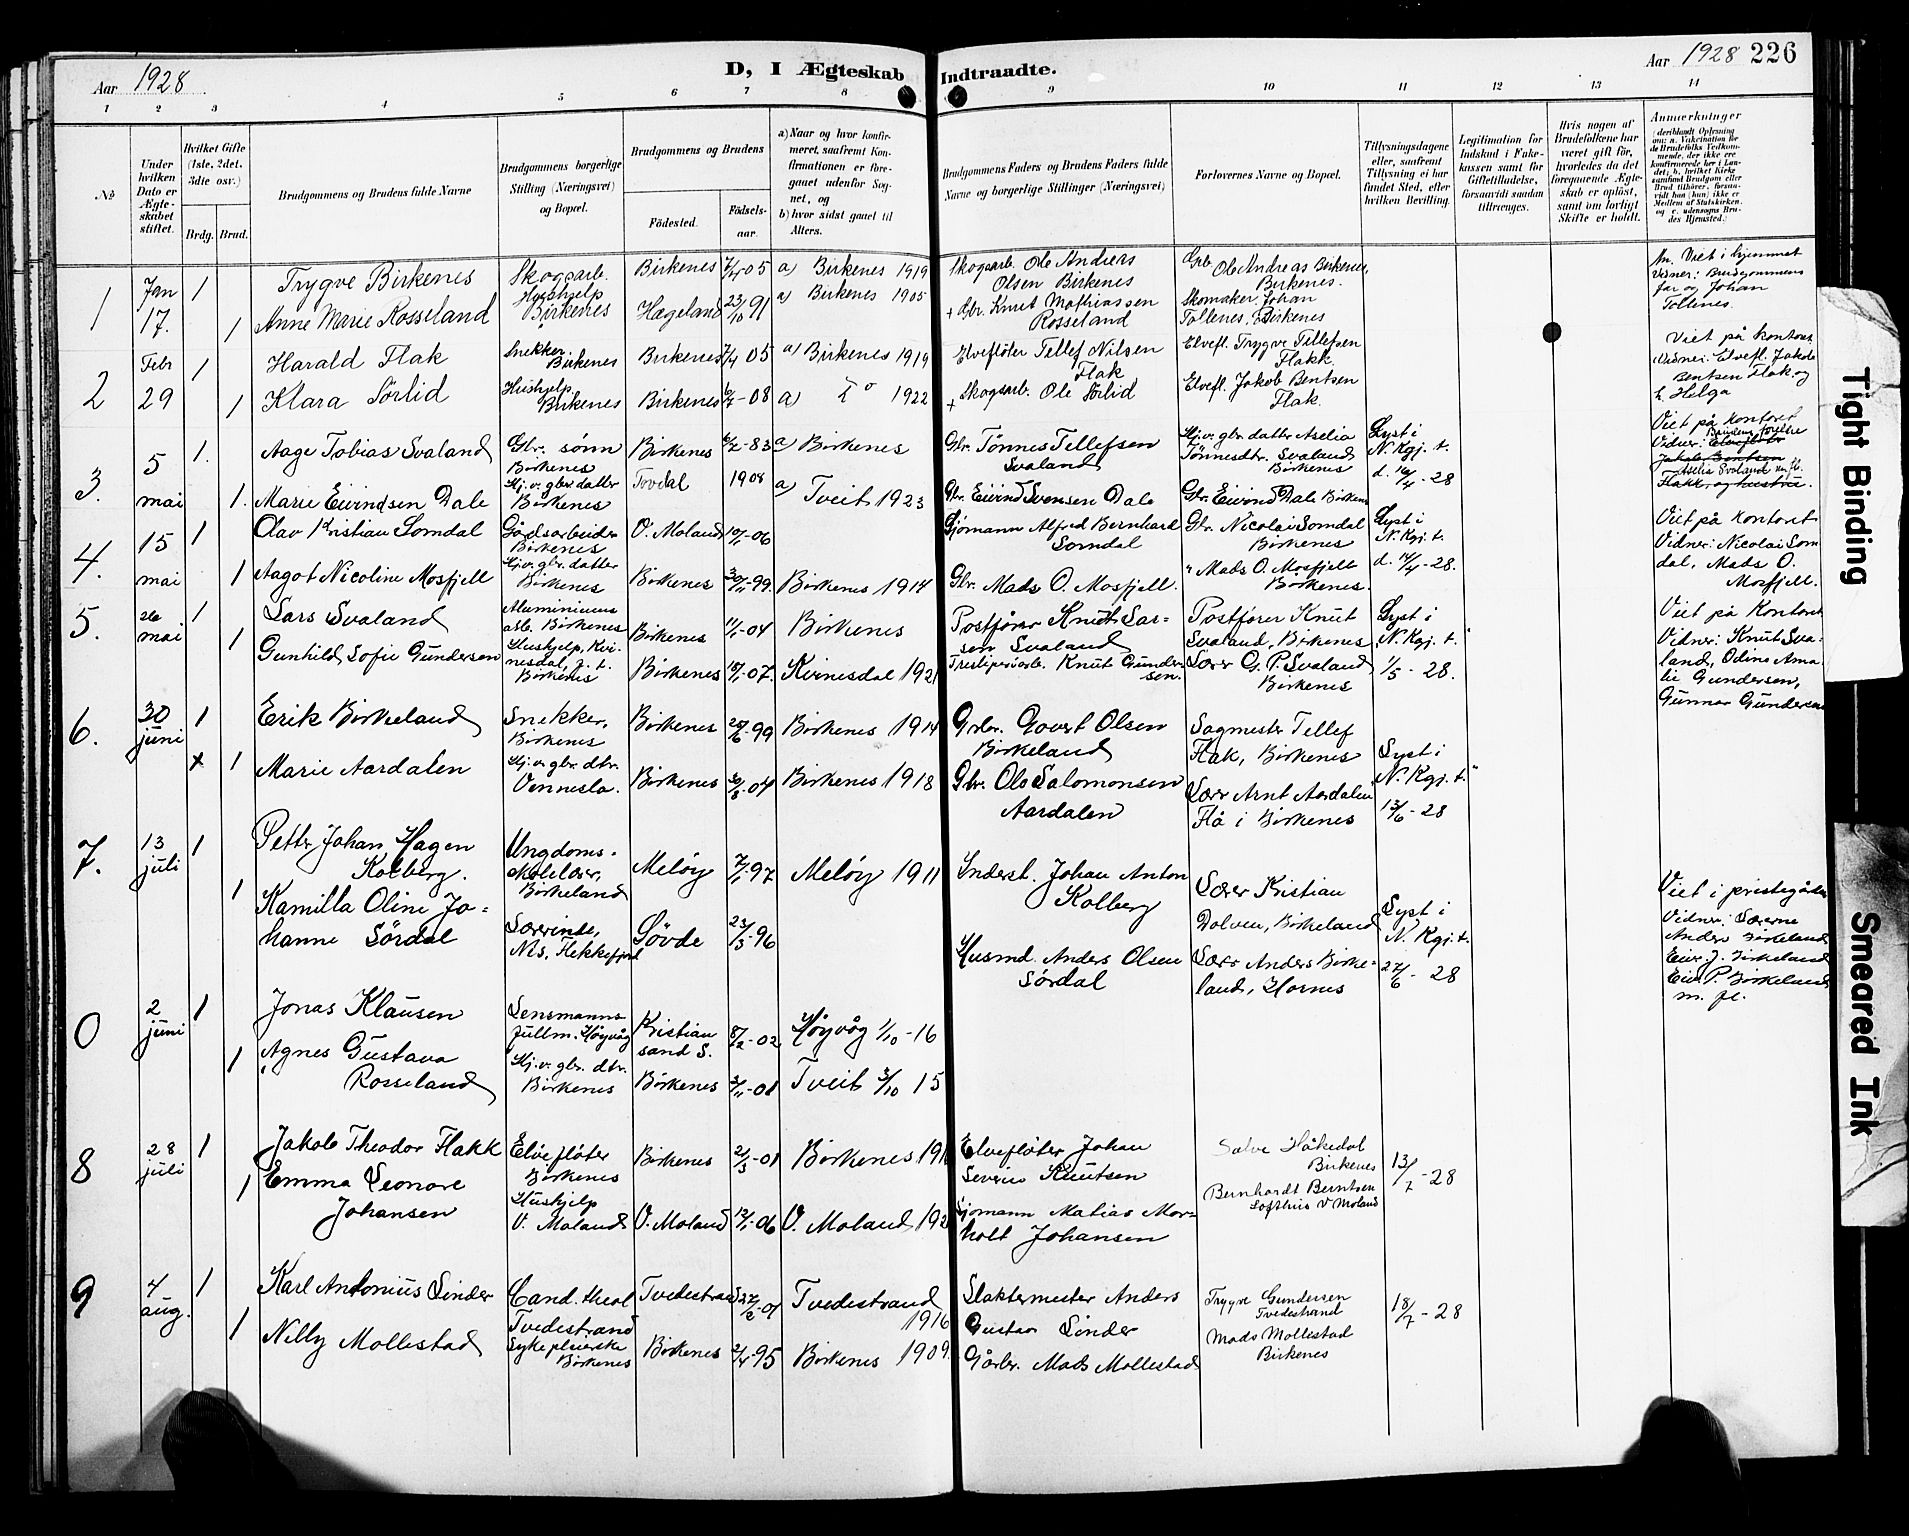 Aar 1928
D, I Ægteskab Indtraadte.
Aar 1928 226
1 2 3 4 5 6 7 8 9 10 11 12 13 14
№
Under hvilken Dato er Ægteskabet stiftet.
Hvilket Gifte (1ste, 2det, 3die osv.)
Brdg. Brud.
Brudgommens og Brudens fulde Navne
Brudgommens borgerlige Stilling (Næringsvei) og Bopæl.
Brudgommens og Brudens
Födested.
Födsels-aar.
a) Naar og hvor konfirmeret, saafremt Konfirmationen er foregaaet udenfor Sognet, og
b) hvor sidst gaaet til Alters.
Brudgommens Faders og Brudens Faders fulde Navne og borgerlige Stillinger (Næringsvei)
Forlovernes Navne og Bopæl.
Tillysningsdagene eller, saafremt Tillysning ei har fundet Sted, efter hvilken Bevilling.
Legitimation for Indskud i Enkekassen samt for Giftetilladelse, forsaavidt saadan tiltrænges.
Hvis nogen af Brudefolkene har været gift før, hvorledes da det foregaaende Ægteskab er oplöst, samt om lovligt Skifte er holdt.
Anmærkninger
1 Jan 17. 1
Trygve Birkenes Skogsarb. Birkenes 05 a) Birkenes 1919 Skogsarb. Ole Andreas Olsen Birkenes Ole Andreas Birkenes, Birkenes.
1 Anne Marie Rosseland Hushjelp Birkenes Hægeland 23/10 91 a) Birkenes 1905 + Gbr. Knut Mathiassen Rosseland Skomaker Johan Tollenes, Birkenes
Viet i hjemmet
Vidner: Brudgommens far og Johan Tollenes.
2 Febr 29 1
Harald Flak Snekker Birkenes Birkenes 05 a) Birkenes 1919 Elvefløter Tellef Nilsen Flak Elvefl. Trygve Tellefsen Flakk
1 Klara Sørlid Hushjelp Birkenes Birkenes 08 a) 1922 + Skogsarb. Ole Sørlid Elvefl. Jakob Bentsen Flak.
Viet på kontoret
Vidner: Elvefl. Jakob Bentsen Flak og h. Helga
3. 5 mai 1.
Aage Tobias Svaland Gbr. sønn Birkenes Birkenes 83 a) Birkenes Gbr. Tønnes Tellefsen Svaland Hj.v. gbr datter Aselia Tønnesdtr. Svaland Birkenes Lyst i N. Kgj. t. d. 16/4 - 28
1. Marie Eivindsen Dale Hj.v. gbr datter Birkenes Tovdal 1904 a) Tveit 1923 Gbr. Eivind Svensen Dale Gbr. Eivind Dale Birkenes
Viet på kontoret
Vidner: Brudens forelse
Aselia Svaland m. fl.
4. 15 mai 1
Olav Kristian Somdal Gårdsarbeider Birkenes Ö. Moland 06 Sjømann Alfred Bernhard Somdal Gbr. Nicolai Somdal Birkenes Lyst i N. Kgj. t. d. 14/4 - 28.
1 Aagot Nicoline Mosfjell Hj.v. gbr. datter Birkenes Birkenes 30/11 99 Birkenes 1914 Gbr. Mads O. Mosfjell. " Mads O. Mosfjell Birkenes.
Viet på kontoret
Vidner: Nicolai Somdal, Mads O. Mosfjell.
5. 26 mai 1
Lars Svaland Aluminiumsarb. Birkenes Birkenes 04 Birkenes Postfører Knut Larsen Svaland Postfører Knut Svaland, Birkenes Lyst i N. Kgj. t. 1/5 - 28.
1 Gunhild Sofie Gundersen Hushjelp, Kvinesdal, f. t. Birkenes Birkenes 07. Kvinesdal 1921 Knut Gundersen. Lærer O. P. Svaland, Birkenes
Viet på kontoret
Vidner: Knut Svaland, Odine Amalie Gundersen, Gunnar Gundersen
6. 30 juni 1
Erik Birkeland Snekker, Birkenes Birkenes 99 Birkenes 1914 Gbr. Govert Olsen Birkeland Sagmester Tellef Flak, Birkenes Lyst i N. Kgj. t. 13/6 - 28
x 1 Marie Aardalen Hj.v. gbr. dtr. Vennesla. Birkenes 04 Birkenes 1918 Gbr. Ole Salomonsen Aardalen Lærer Arnt Aardalen Flå i Birkenes
7. 13 juli 1
Petter Johan Hagen Kolberg. Ungdomsskolelærer, Birkeland Meløy 97 Meløy 1911 Inderst. Johan Anton Kolberg Lærer Kristian Dolven, Birkeland Lyst i N. Kgj. t. 27/6 - 28
1 Kamilla Oline Johanne Sørdal Lærerinde, Nes, Flekkefjord Søvde 96 Husmd. Anders Olsen Sørdal Lærer Anders Birkeland, Hornes
Viet i prestegården
Vidner: Lærerne Anders Birkeland Eiv. J. Birkeland Eiv. P. Birkeland m. fl.
0 2 juni 1
Jonas Klausen Lensmannsfullm. Høyvåg Kristiansand S. 8/2 - 02 Høyvåg 1/10 - 16
1 Agnes Gustava Rosseland Hj.v. gbr. dtr. Birkenes Birkenes 01 Tveit 3/10 15
8 28 juli 1
Jakob Theodor Flakk Elvefløter Birkenes Birkenes 01 Birkenes 191 Elvefløter Johan Severin Knutsen Salve Håkedal Birkenes 13/7 - 28
1 Emma Leonore Johansen Hushjelp V. Moland V. Moland 06 V. Moland 192 Sjømann Matias Morholt Johansen Bernhardt Berntsen Lofthus V Moland
9 4 aug. 1
Karl Antonius Linder Cand. theol Tvedestrand Tvedestrand 27/2 - 01 Tvedestrand 1916 Slaktermester Anders Gustav Linder Trygve Gundersen Tvedestrand 18/7 - 28
1 Nelly Mollestad Sykepleierske Birkenes Birkenes 95 Birkenes 1909. Gårbr. Mads Mollestad Mads Mollestad Birkenes
Tight Binding
Smeared Ink